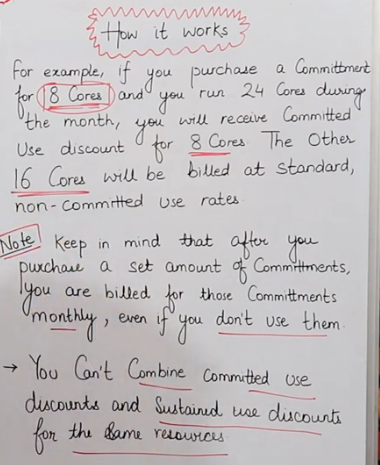 How it works
For example, if you purchase a Committment
for 8 Cores and you run 24 Cores during
the month, you will receive Committed
Use discount for 8 Cores. The Other
16 Cores will be billed at Standard,
non-Committed use rates.
Note Keep in mind that after you
purchase a set amount of Committments,
you are billed for those Committments
monthly, even if you don't use them.
→ You Can't Combine Committed use
discounts and Sustained use discounts
for the Same resources